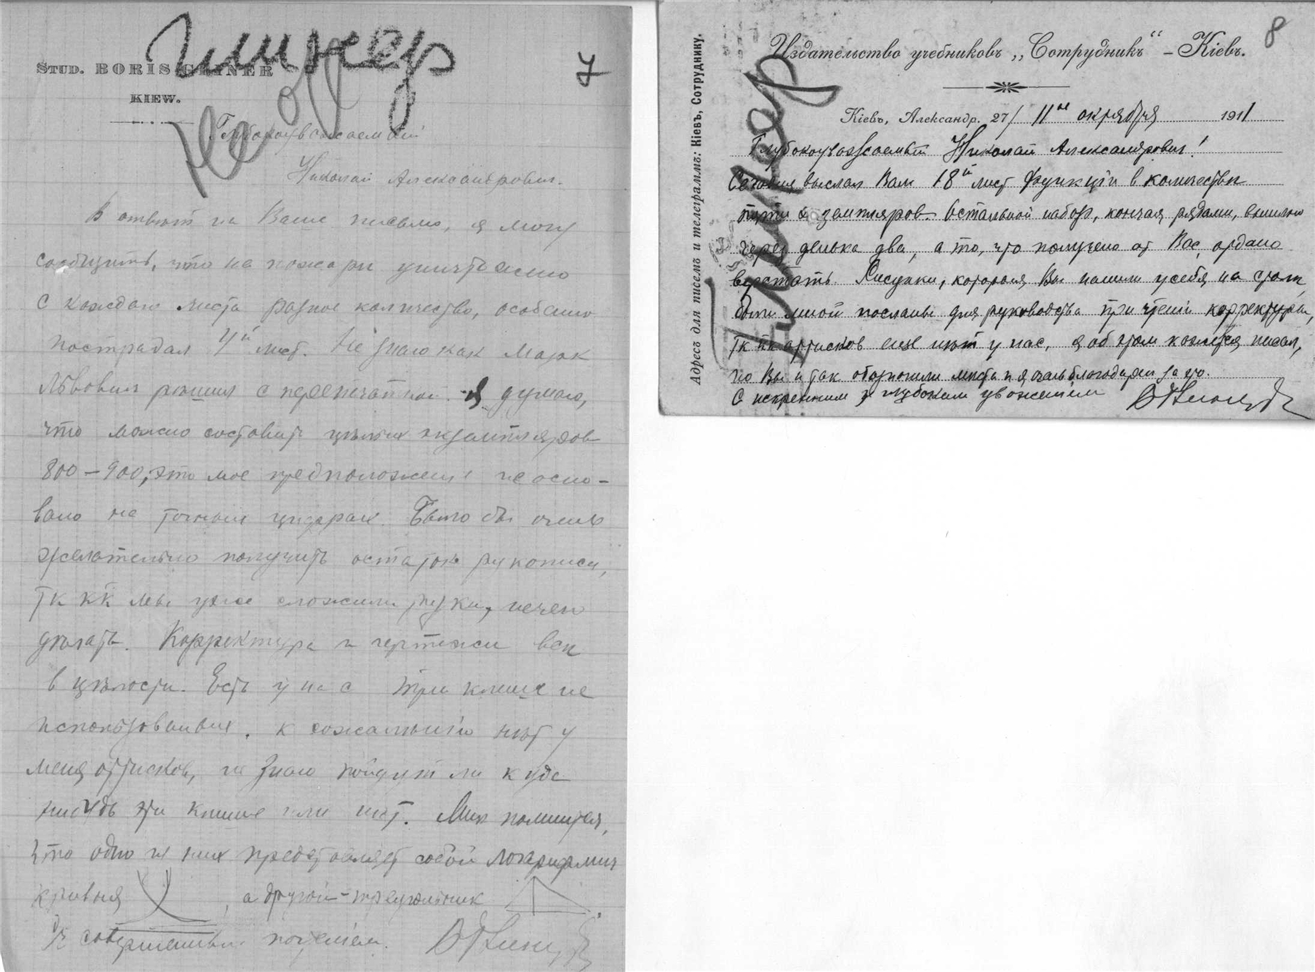 Глинжер
7
STUD. BORIS
KIEW.
Глубокоуважаемый
Николай Александрович.
В ответ на Ваше письмо, я могу
сообщить, что на пожаре уничтожено
с каждаго листа разное количество, особенно
пострадал лист. Не знаю как Марк
Львович решил с перепечаткой. Я думаю,
что можно составить цѣлых экземпляров
800 – 900, это мое предположение не осно-
вано на точных цифрах. Было бы очень
желательно получить остаток рукописи,
тк кк мы уже сложили руки, нечего
дѣлать. Корректура и чертежи все
в цѣлости. Есть у нас три клише не
использованныя, к сожалѣнію нѣт у
меня оттисков, не знаю пойдут ли куда
нибудь эти клише или нѣт. Мне помнится,
что одно из них представляет собой логарифмич
кривыя , а другой – треугольник
с совершенным почтеніем.
8
Издательство учебниковъ „Сотрудникъ“ – Кіевъ.
Кіевъ, Александр. 27/ 11го октября 1911
Глубокоуважаемый Николай Александрович!
Сегодня выслал Вам 18й лист функцій в количествѣ
пяти экземпляров. Остальной набор, кончая рядами, вышлю
через денька два, а то, что получено от Вас, отдано
верстать. Рисунки, которые Вы нашли у себя на столѣ,
были мной посланы для руководства при чтеніи корректуры,
тк кк оттисков еще нѣт у нас, я об этом кажется писал,
но Вы и так обозначили мѣста и я очень благодарен за это.
С искренним и глубоким уваженіем
Адресъ для писемъ и телеграммъ: Кіевъ, Сотруднику.